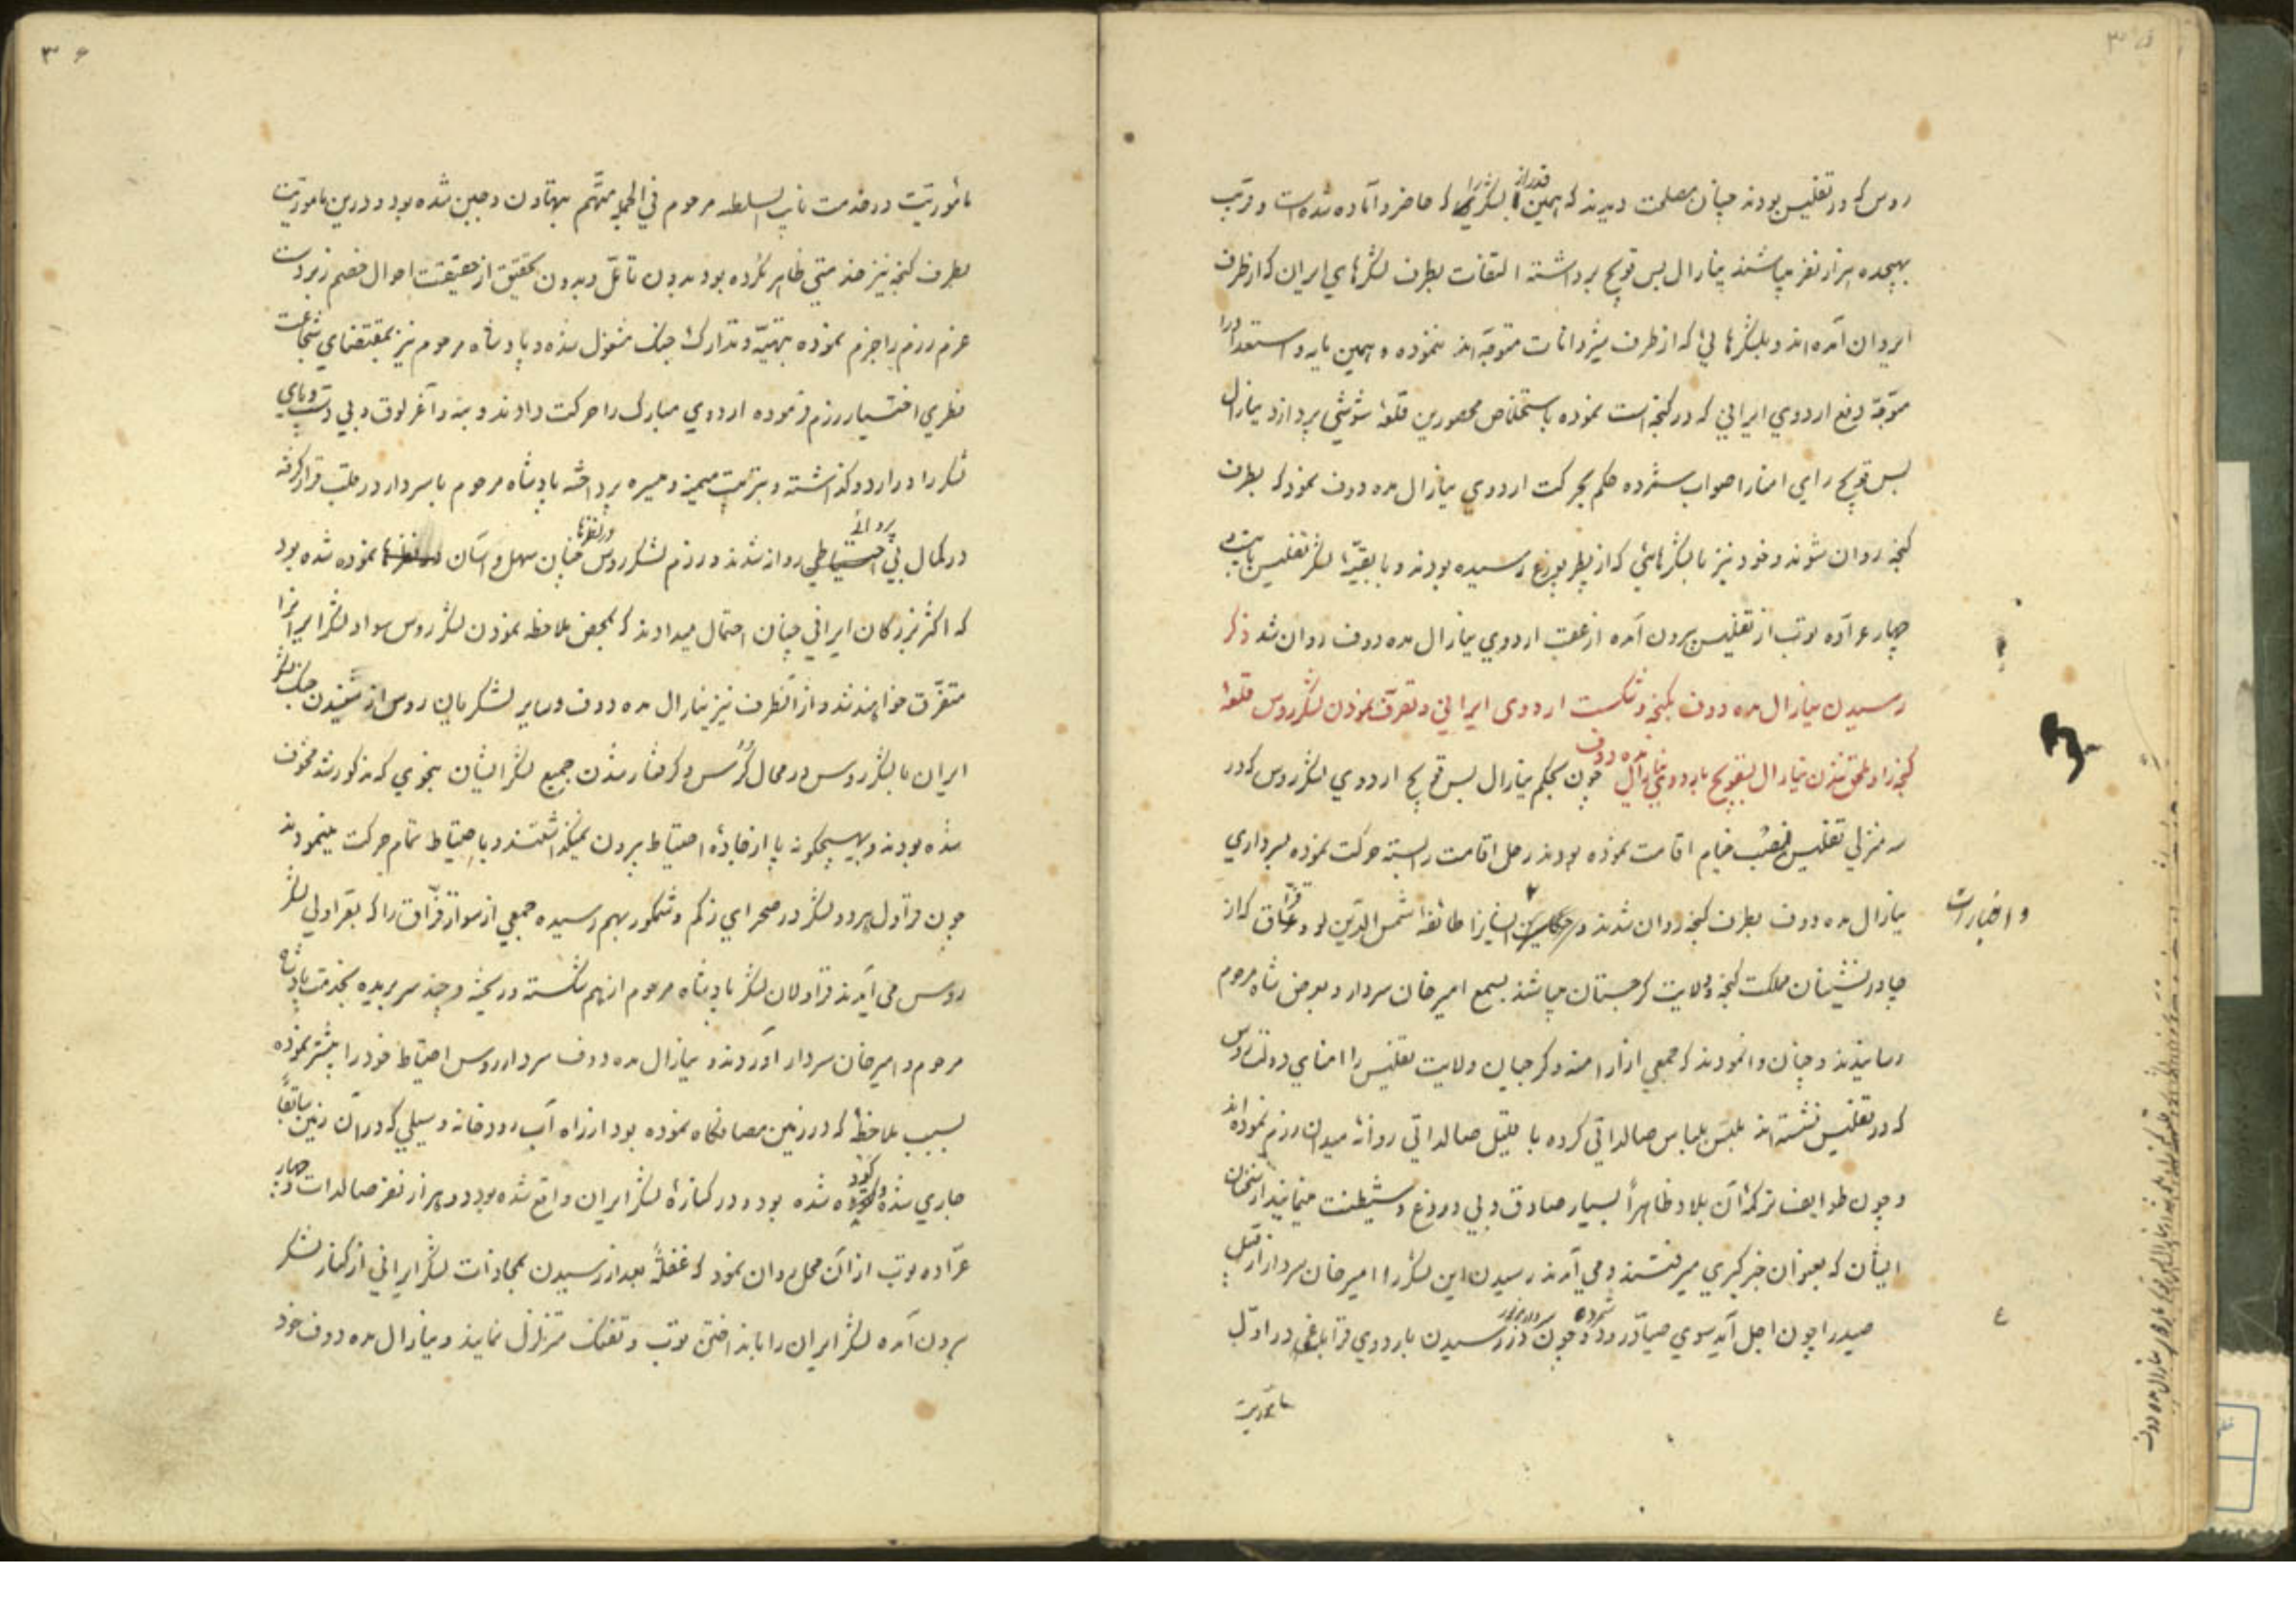 روس که در تفلیس بودند چنان مصلحت دیدند که همین قدر از لشکر را که حاضر و آماده شده است و قریب
بهیجده هزار نفر میباشند ینارال بس قویچ برداشته التفات بطرف لشکرهای ایران که از طرف
ایروان آمده‌اند و بلشکرهائی که از طرف شیروانات متوجّه‌اند ننموده و همین مایه و استعداد را
متوجّه دفع اردوی ایرانی که در گنجه است نموده باستخلاص محصورین قلعهٔ شوشی پردازد ینارال
بس قویچ رای امنا را صواب شمرده حکم بحرکت اردوی ینارال مده دوف نمود که بطرف
گنجه روان شوند و خود نیز با لشکرهائی که از پطربورغ رسیده بودند و با بقیّهٔ لشکر تفلیس
چهار عرّاده توپ از تفلیس بیرون آمده از عقب اردوی ینارال مده دوف روان شد ذکر
رسیدن ینارال مده دوف بگنجه و شکست اردوی ایرانی و تصرّف نمودن لشکر روس قلعهٔ
گنجه را و ملحق شدن ینارال بسقویچ باردوی ینارال مده دوف چون بحکم ینارال بس قویچ اردوی لشکر روس که در
سه منزلی تفلیس نصب خیام اقامت نموده بودند رحل اقامت را بسته حرکت نموده بسرداری
ینارال مده دوف بطرف گنجه روان شدند و اخبارات ایشانرا طائفهٔ شمس الدّین لو و قزّاق که از
چادرنشینان مملکت گنجه و ولایت گرجستان میباشند بسمع امیرخان سردار و بعرض شاه مرحوم
رسانیدند و چنان وانمودند که جمعی از ارامنه و گرجیان ولایت تفلیس را امنای دولت روس
که در تفلیس نشسته‌اند ملبّس بلباس صالداتی کرده با قلیل صالداتی روانهٔ میدان رزم نموده‌اند
و چون طوایف تراکمهٔ آن بلاد ظاهراً بسیار صادق و بی دروغ و شیطنت مینمایند از سخنان
ایشان که بعنوان خبرگیری میرفتند و می آمدند رسیدن این لشکر را امیرخان سردار از قبیل
صید را چون اجل آید سوی صیّاد رود شمرده و چون سردار مزبور در رسیدن باردوی قراباغی در اوّل
مأموریت
مأموریّت در خدمت نایب السلطنه مرحوم فی الجمله متّهم بتهاون و جبن شده بود و درین ماموریّت
بطرف گنجه نیز خدمتی ظاهر نکرده بود بدون تأمّل و بدون تحقیق از حقیقت احوال خصم زبردست
عزم رزم را جزم نموده بتهیّه و تدارک جنگ مشغول شده و پادشاه مرحوم نیز بمقتضای شجاعت
فطری اختیار رزم فرموده اردوی مبارک را حرکت دادند و بنه و آغرلوق و بی دست و پای
لشکر را در اردو گذاشته و بترتیب میمنه و میسره پرداخته پادشاه مرحوم با سردار در قلب قرار گرفته
در کمال بی پروائی روانه شدند و رزم لشکر روس در نظرها چنان سهل و آسان نموده شده بود
که اکثر بزرگان ایرانی چنان احتمال میدادند که بمحض ملاحظه نمودن لشکر روس سواد لشکر ایرانرا
متفرّق خواهند شد و از آنطرف نیز ینارال مده دوف و سایر لشکریان روس از شنیدن جنگ لشکر
ایران با لشکر روس در محال گروس و گرفتار شدن جمیع لشکر ایشان بنحوی که مذکور شد مخوّف
شده بودند و بهیچگونه پا از جادّهٔ احتیاط بیرون نمیگذاشتند و با احتیاط تمام حرکت مینمودند
چون قراول هر دو لشکر در صحرای زکم و شمکور بهم رسیده جمعی از سوار قزّاق را که بقراولی لشکر
روس می آمدند قراولان لشکر پادشاه مرحوم از هم شکسته و ریخته و چند سر بریده بخدمت پادشاه
مرحوم و امیرخان سردار آوردند و ینارال مده دوف سردار روس احتیاط خود را بیشتر نموده
بسبب ملاحظهٔ که در زمین مصافگاه نموده بود از راه آب رودخانه و سیلی که در آن زمین سابقاً
جاری شده و گود شده بود و در کنارهٔ لشکر ایران واقع شده بود دو هزار نفر صالدات و چهار
عرّاده توپ از آن محل روان نمود که غفلةً بعد از رسیدن بمحاذات لشکر ایرانی از کنار لشکر
بیرون آمده لشکر ایران را بانداختن توپ و تفنگ متزلزل نمایند و ینارال مده دوف خود